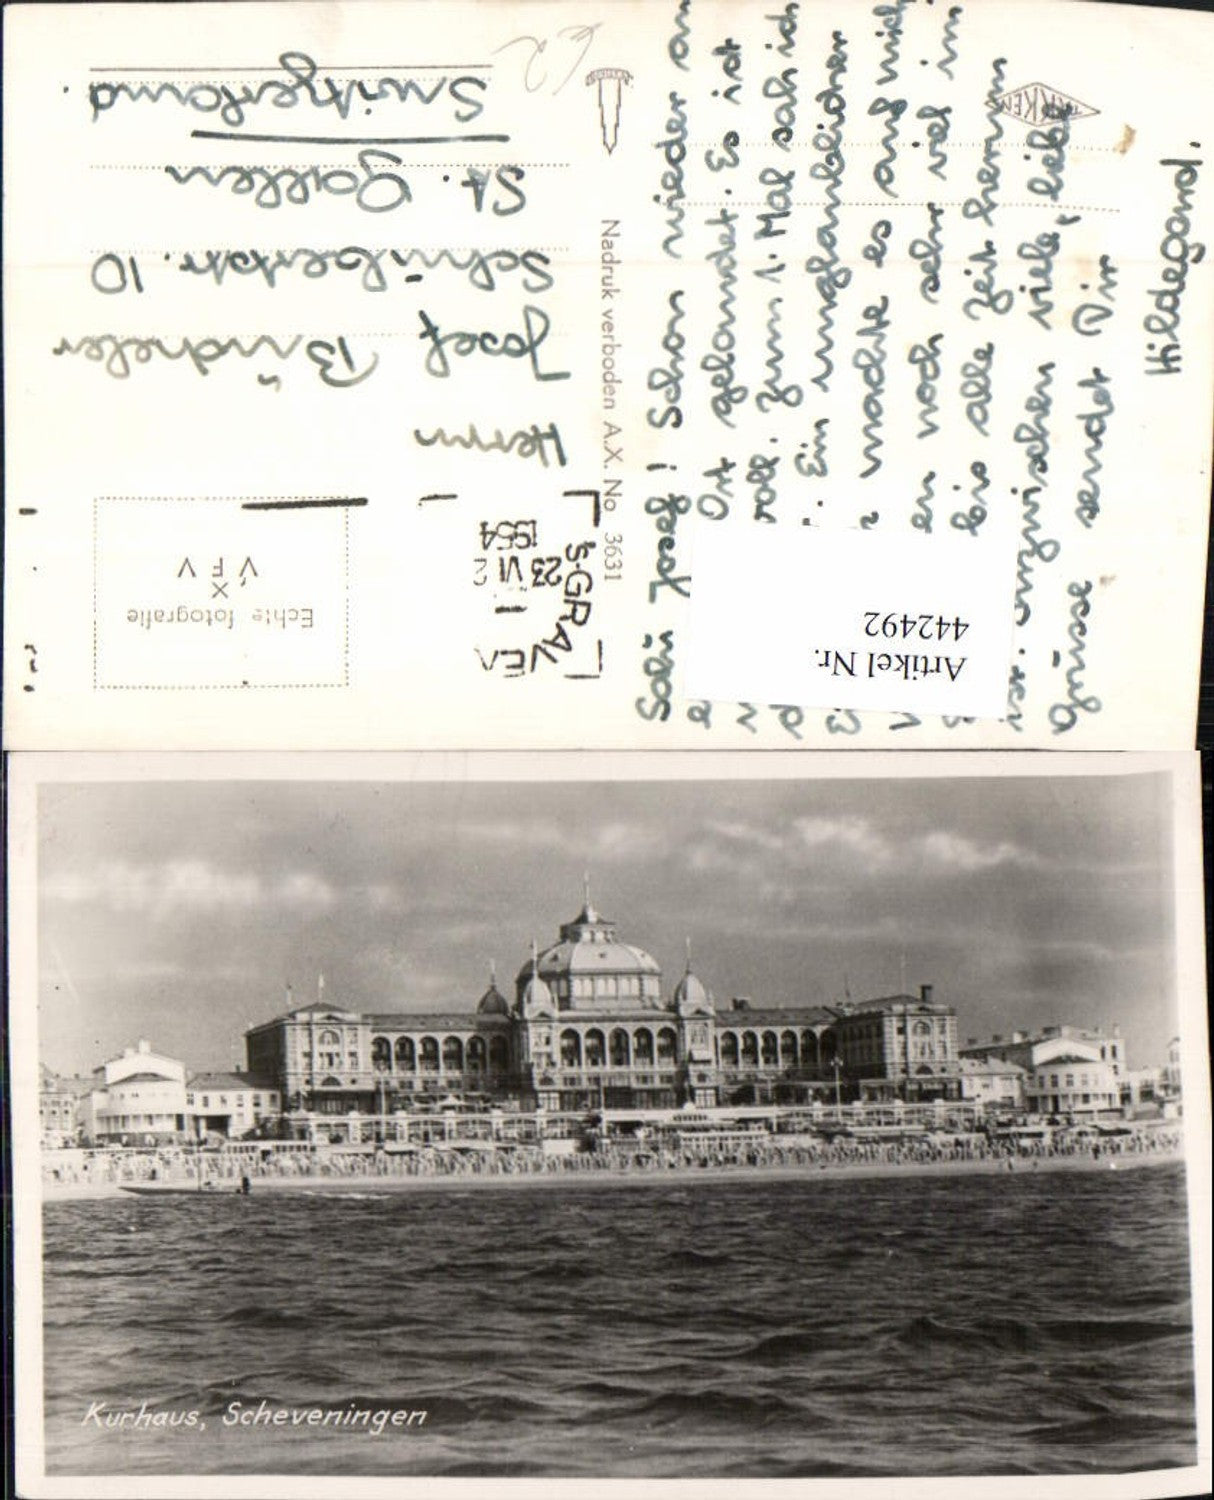 Salü Josef! Schon wieder an
Ort gelandet. Es ist
voll. Zum 1. Mal sah ich
. Ein unglaublicher
machte es auf mich
en noch sehr viel im
bis alle Zeit herum
inzwischen viele, liebe
Grüsse sendet Dir
Hildegard.
TAKKEN
Nadruk verboden A.X. No 3631
€2
Echte fotografie
X
V F V
'S-GRAVEN
23 VI 2
1954
Herrn
Josef Bücheler
Schubertstr. 10
St. Gallen
Switzerland.
Artikel Nr.
442492
Kurhaus, Scheveningen